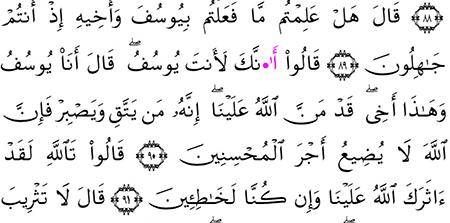 ﴿٨٨﴾ قَالَ هَلْ عَلِمْتُم مَّا فَعَلْتُم بِيُوسُفَ وَأَخِيهِ إِذْ أَنتُمْ
جَٰهِلُونَ ﴿٨٩﴾ قَالُوٓا۟ أَ۟نَّكَ لَأَنتَ يُوسُفُ ۖ قَالَ أَنَا۠ يُوسُفُ
وَهَٰذَآ أَخِى ۖ قَدْ مَنَّ ٱللَّهُ عَلَيْنَآ ۖ إِنَّهُۥ مَن يَتَّقِ وَيَصْبِرْ فَإِنَّ
ٱللَّهَ لَا يُضِيعُ أَجْرَ ٱلْمُحْسِنِينَ ﴿٩٠﴾ قَالُوا۟ تَٱللَّهِ لَقَدْ
ءَاثَرَكَ ٱللَّهُ عَلَيْنَا وَإِن كُنَّا لَخَٰطِـِٔينَ ﴿٩١﴾ قَالَ لَا تَثْرِيبَ